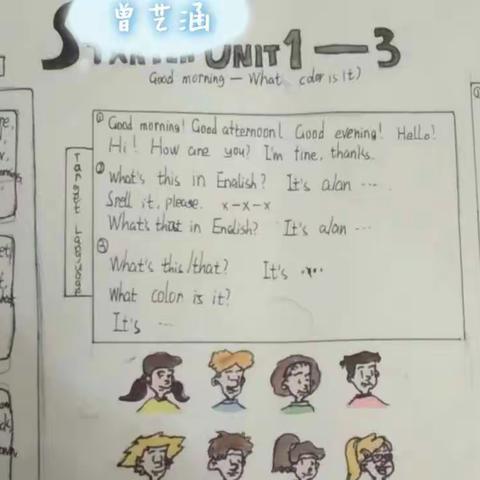 曾艺涵
STARTER UNIT 1—3
Good morning — What color is it)
Target Language
① Good morning! Good afternoon! Good evening! Hello!
Hi! How are you? I'm fine, thanks.
② What's this in English? It's a/an ….
Spell it, please. x-x-x
What's that in English? It's a/an …
③
What's this/that? It's ….
What color is it?
It's …